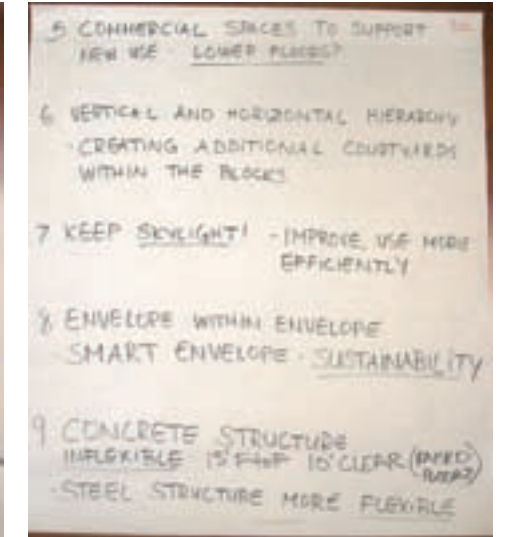 5 COMMERCIAL SPACES TO SUPPORT
NEW USE - LOWER FLOORS?
6 VERTICAL AND HORIZONTAL HIERARCHY
- CREATING ADDITIONAL COURTYARDS
WITHIN THE BLOCKS
7 KEEP SKYLIGHT! - IMPROVE, USE MORE
EFFICIENTLY
8 ENVELOPE WITHIN ENVELOPE
SMART ENVELOPE - SUSTAINABILITY
9 CONCRETE STRUCTURE
INFLEXIBLE 15' F to F 10' CLEAR
- STEEL STRUCTURE MORE FLEXIBLE